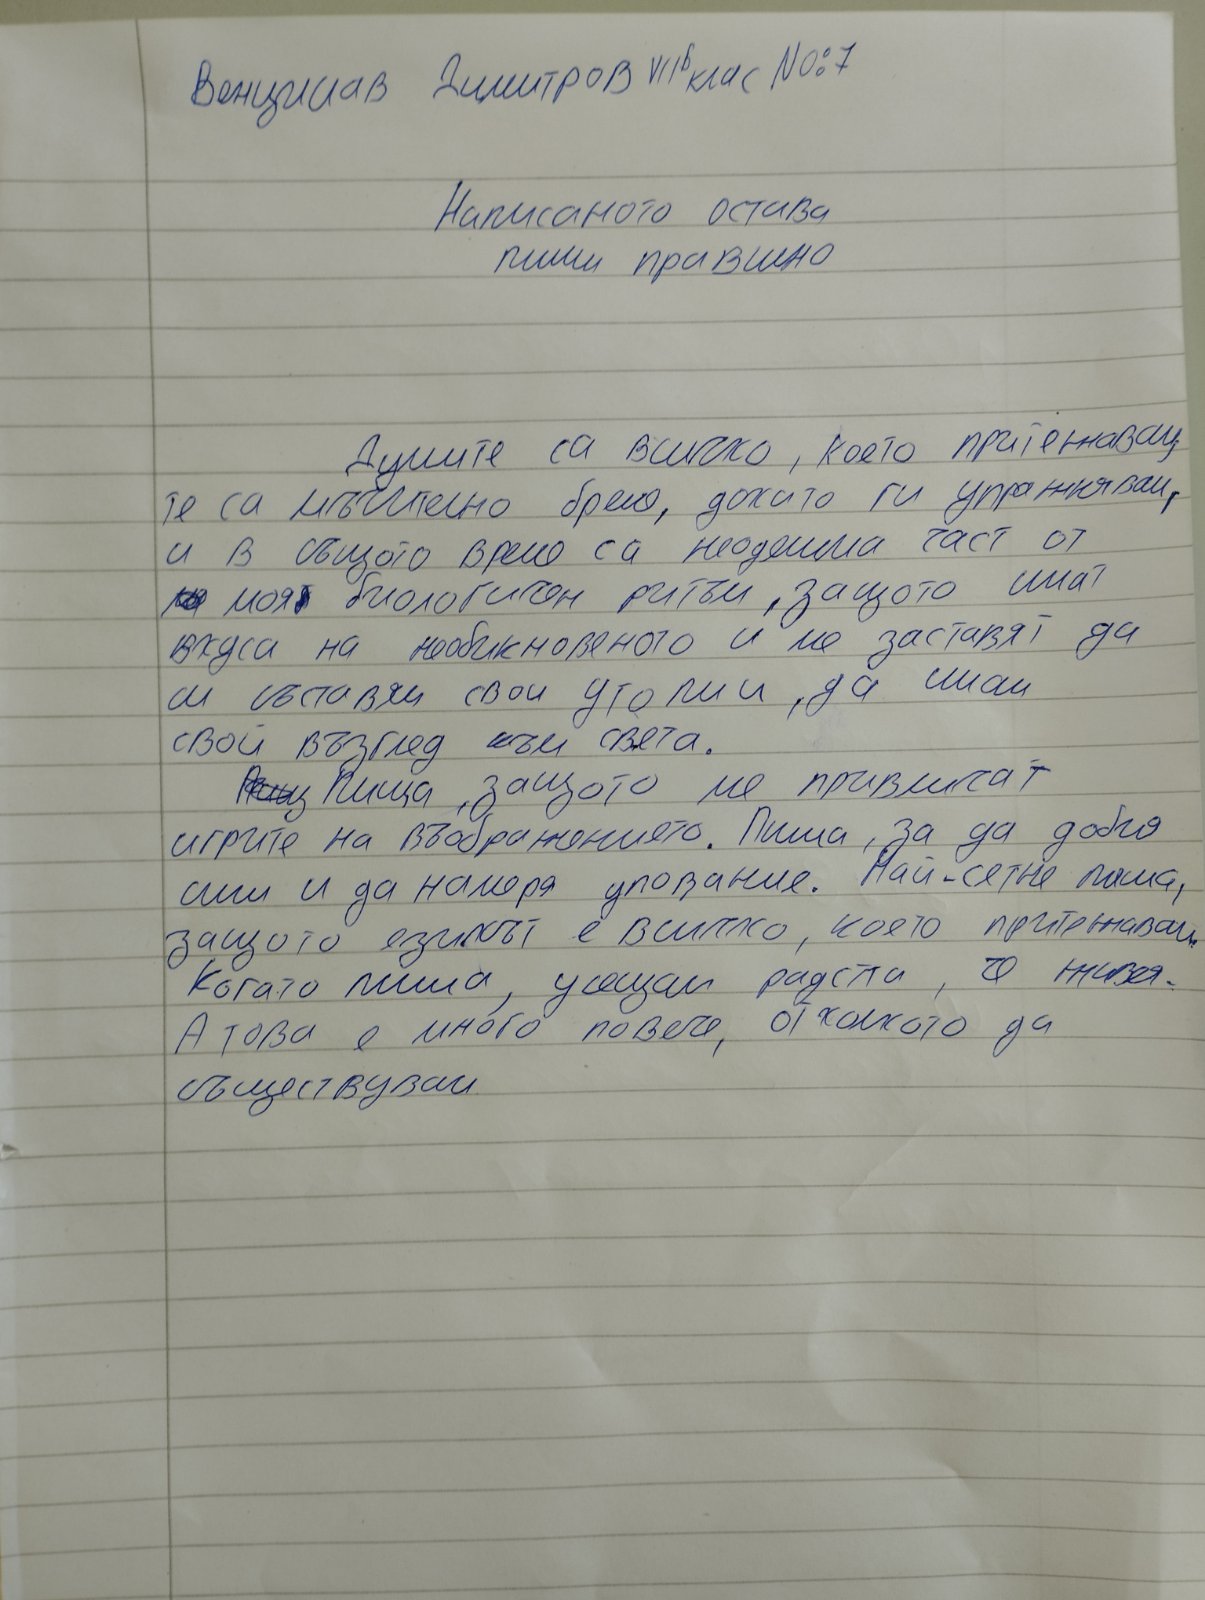 Венцислав Димитров VIIв клас №:7
Написаното остава
пиши правилно
Думите са всичко, което притежавам,
те са мъчително бреме, докато ги упражнявам,
и в същото време са неделима част от
моя биологичен ритъм, защото имат
вкуса на необикновеното и ме заставят да
си съставям свои утопии, да имам
свой възглед към света.
Пища, защото ме привличат
игрите на въображението. Пиша, за да добия
сили и да намеря упование. Най-сетне пиша,
защото езикът е всичко, което притежавам.
Когато пиша, усещам радстта, че живея.
А това е много повече, отколкото да
съществувам